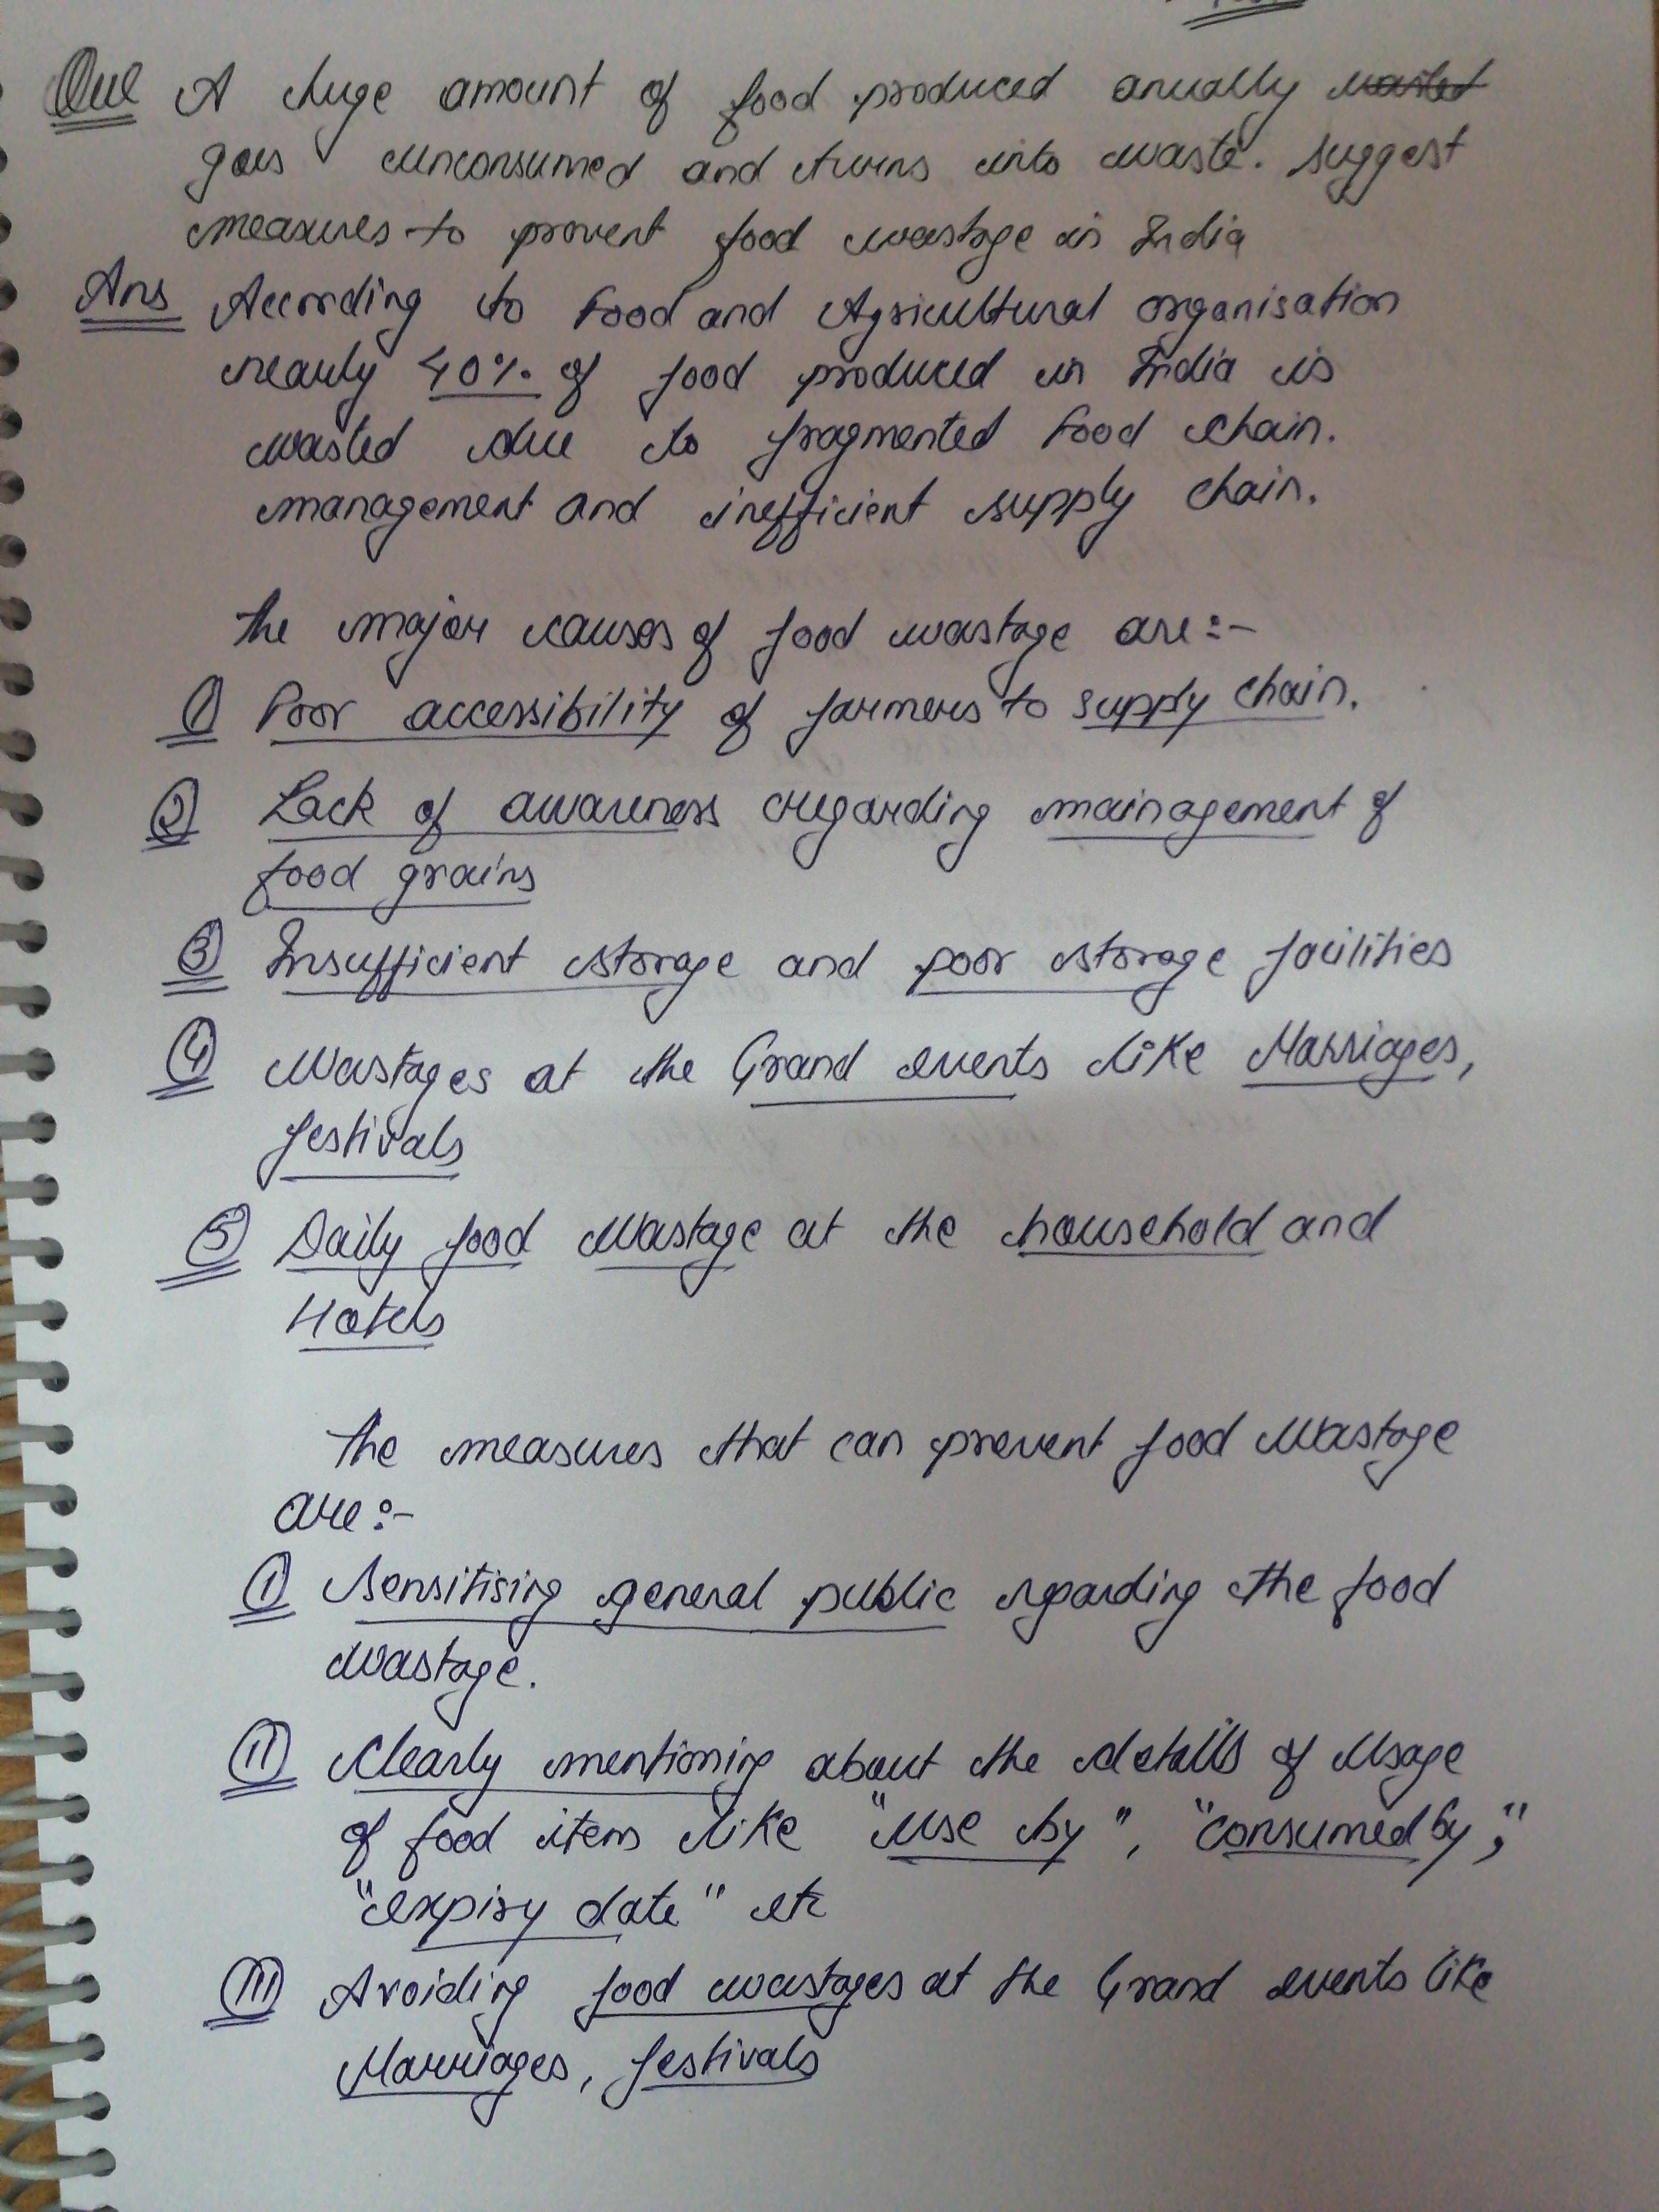 Que A huge amount of food produced anually wasted
goes unconsumed and turns into waste. Suggest
measures to prevent food wastage in India
Ans According to Food and Agricultural organisation
nearly 40% of food produced in India is
wasted due to fragmented Food chain.
management and inefficient supply chain.
The major causes of food wastage are:-
① Poor accessibility of farmers to supply chain.
② Lack of awareness regarding mainagement of
food grains
③ Insufficient storage and poor storage facilities
④ Wastages at the Grand events like Marriages,
festivals
⑤ Daily food wastage at the household and
Hotels
The measures that can prevent food wastage
are:-
Ⓘ Sensitising general public regarding the food
wastage.
II Clearly mentioning about the details of usage
of food items like "use by", "consumed by",
"expiry date" etc
III Avoiding food wastages at the Grand events like
Marriages, festivals